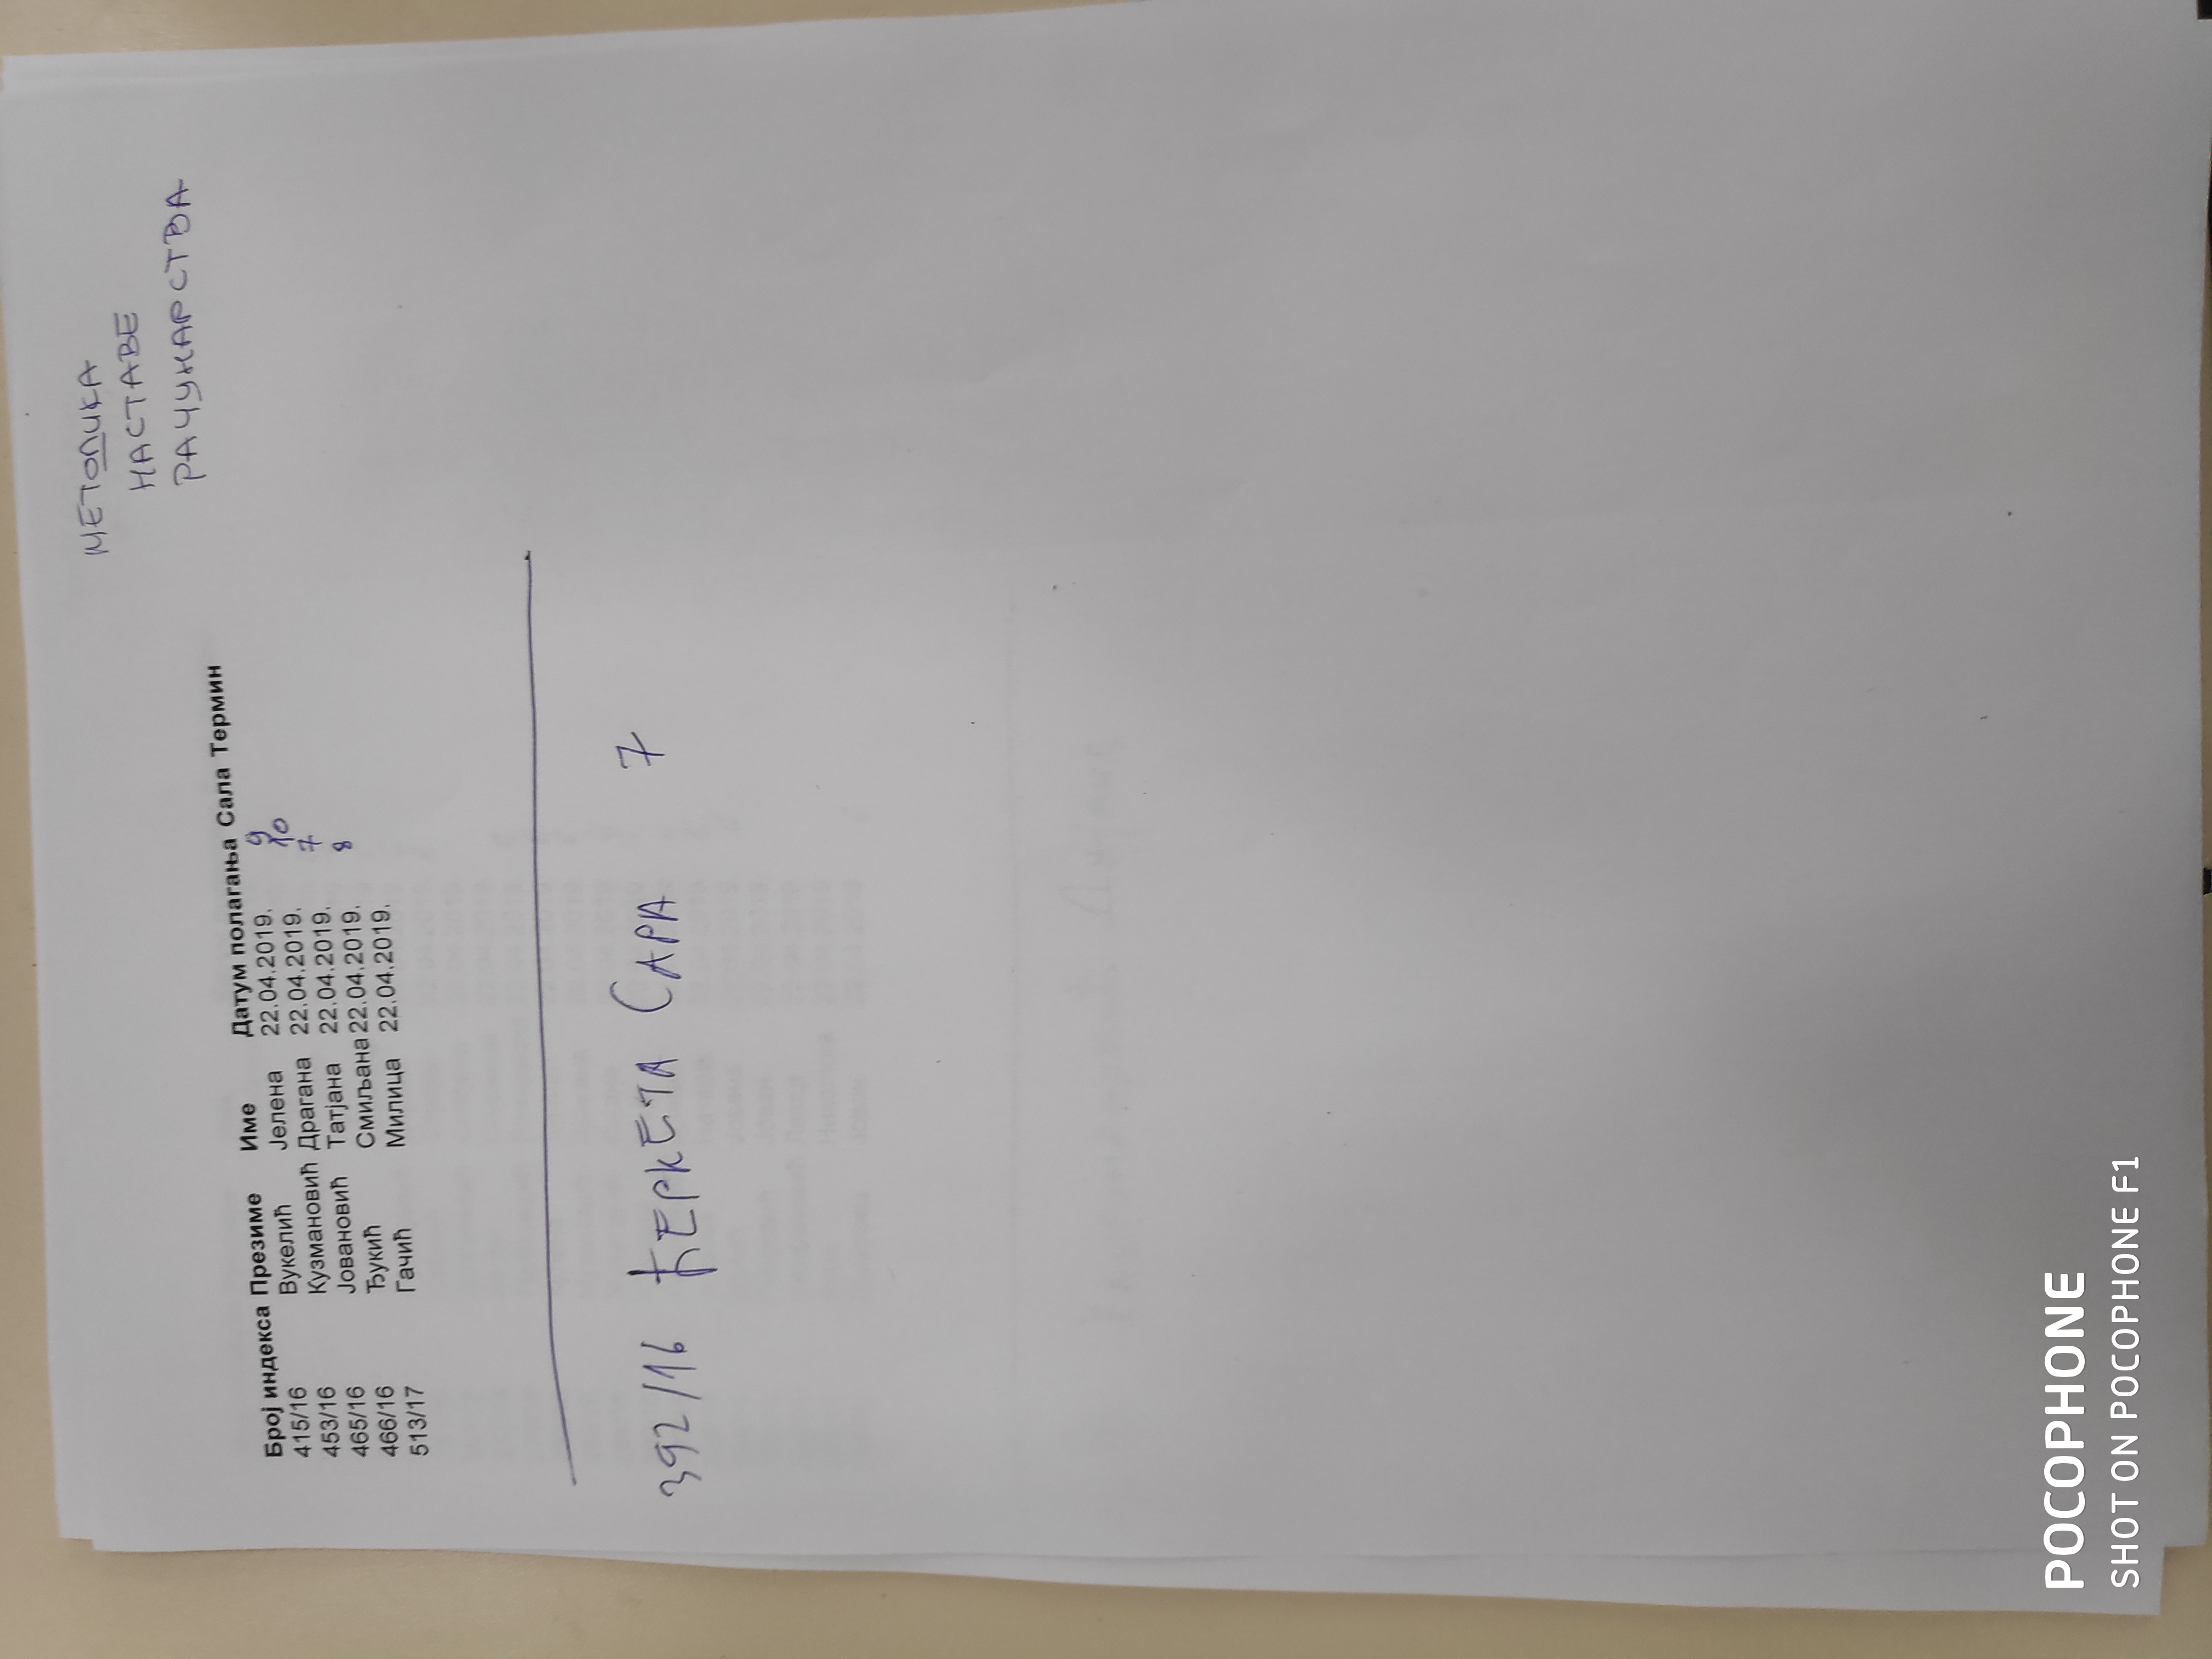 МЕТОДИКА
НАСТАВЕ
РАЧУНАРСТВА
Број индекса Презиме Име Датум полагања Сала Термин
415/16 Вукелић Јелена 22.04.2019. 9
453/16 Кузмановић Драгана 22.04.2019. 10
465/16 Јовановић Татјана 22.04.2019. 7
466/16 Ђукић Смиљана 22.04.2019. 8
513/17 Гачић Милица 22.04.2019.
392/16 ЋЕРКЕТА САРА 7
POCOPHONE
SHOT ON POCOPHONE F1